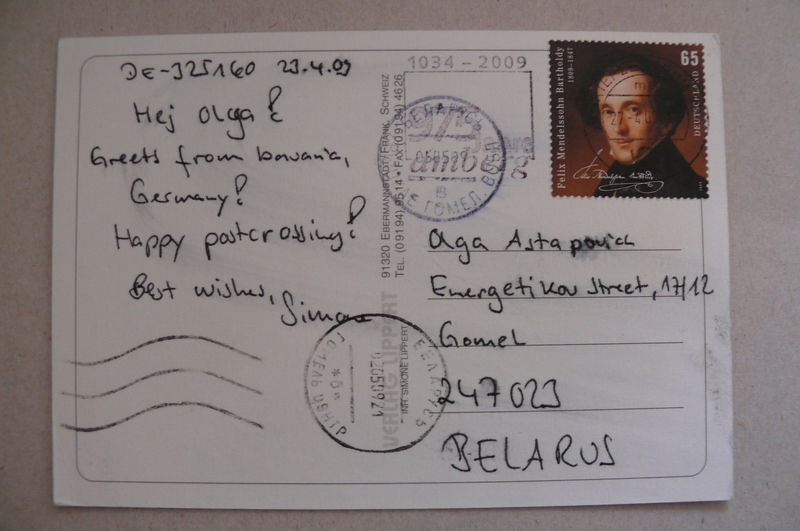 DE-325160 23.4.09
Hej Olga!
Greets from bavaria,
Germany!
Happy postcrossing!
Best wishes,
Simone
91320 EBERMANNSTADT/FRÄNK. SCHWEIZ
TEL. (09194) 9514 • FAX (09194) 4626
VERLAG LIPPERT
INH. SIMONE LIPPERT
1034 - 2009
975
БЕЛАРУСЬ
ГОМЕЛ. ВОБЛ
В
Felix Mendelssohn Bartholdy
1809-1847
65
DEUTSCHLAND
Olga Astapovich
Energetikov street, 17/12
Gomel
247023
BELARUS
БЕЛАРУСЬ
02050921